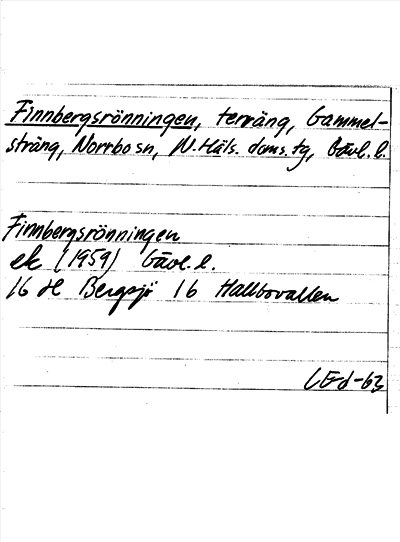 Finnbergsrönningen, terräng, Gammel-
sträng, Norrbo sn, N. Häls. doms. tg, Gävl. l.
Finnbergsrönningen
ek (1959) Gävl. l.
16 H Bergsjö 1 b Hallbovallen
LEd-63